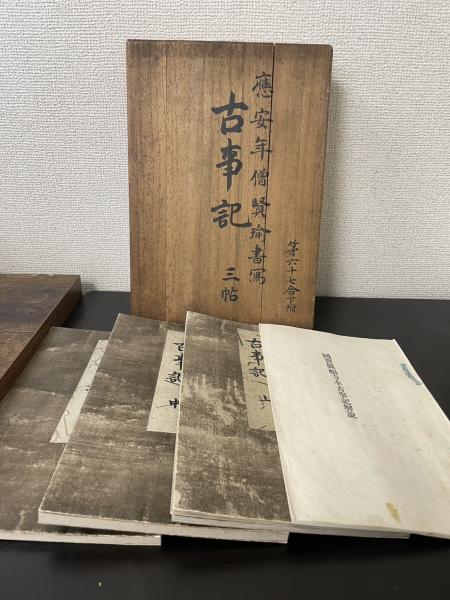 應安年僧賢瑜書寫
古事記
三帖
第六十七合下附
國寶眞福寺本古事記解說
古事記 上
古事記 中